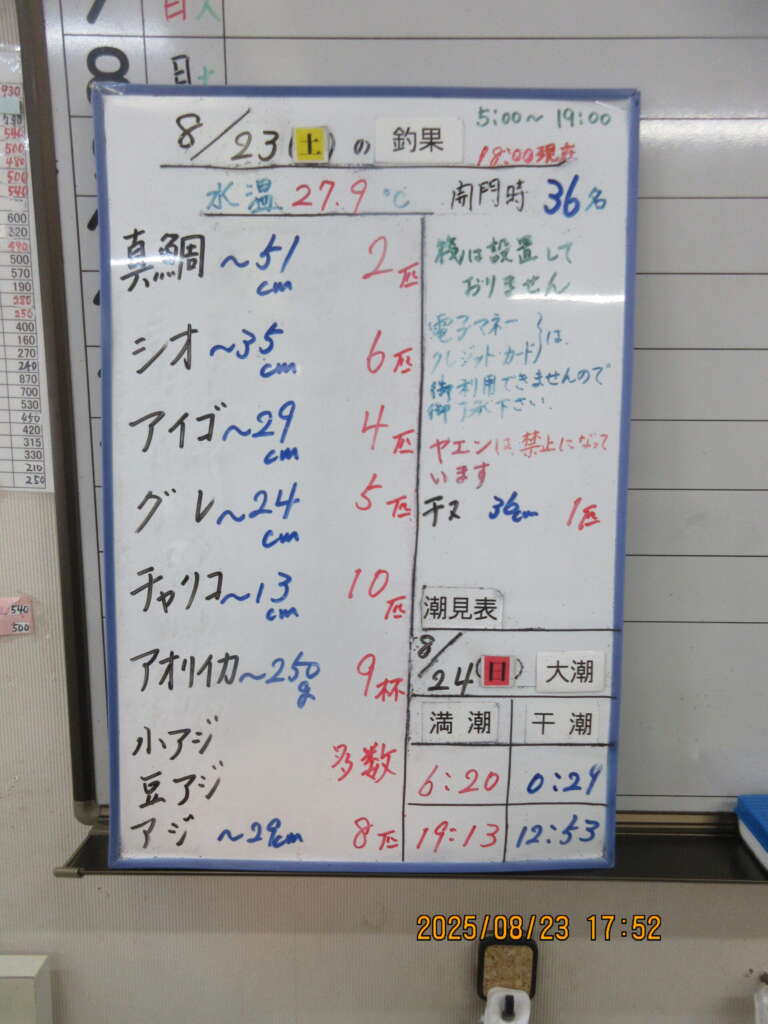 8/23(土)の釣果
5:00〜19:00
18:00現在
水温 27.9℃
開門時 36名
真鯛 〜51cm 2匹
シオ 〜35cm 6匹
アイゴ 〜29cm 4匹
グレ 〜24cm 5匹
チャリコ 〜13cm 10匹
アオリイカ 〜250g 9杯
小アジ
豆アジ
多数
アジ 〜29cm 8匹
筏は設置して
おりません
電子マネー
クレジット・カード}は、
御利用できませんので
御了承下さい。
ヤエンは禁止になって
います
チヌ 36cm 1匹
潮見表
8/24(日) 大潮
満潮 干潮
6:20 0:29
19:13 12:53
8 日 土
930
540
500
480
500
540
600
320
490
500
570
190
280
250
400
160
270
240
870
700
530
450
420
315
330
210
250
540
500
2025/08/23 17:52